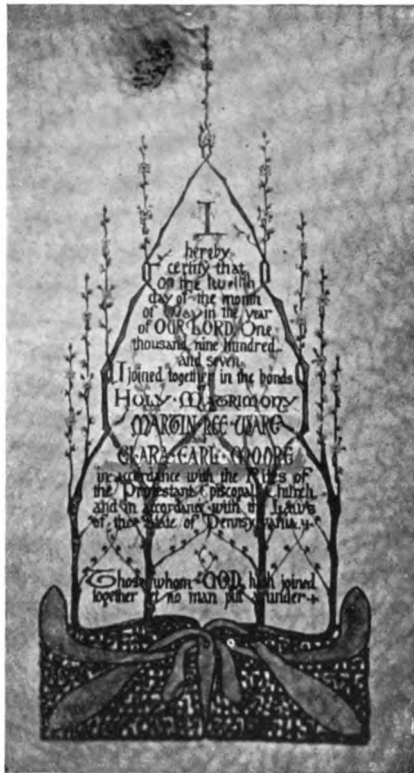 I
hereby
certify that
on the twelfth
day of the month
of May in the year
of OUR LORD One
thousand nine hundred
and seven
I joined together in the bonds
HOLY · MATRIMONY
MARTIN · REE · WARE
CLARA · EARL · MOORE
in accordance with the Rites of
the Protestant Episcopal Church
and in accordance with the Laws
of the State of Pennsylvania
Those whom GOD hath joined
together let no man put asunder